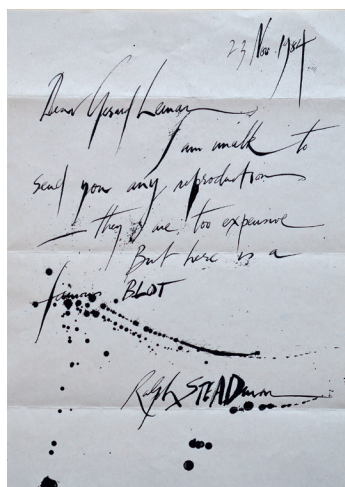 23 Nov. 1984
Dear Gerard Leman
I am unable to
send you any reproductions
— they are too expensive
But here is a
famous BLOT
Ralph STEADman